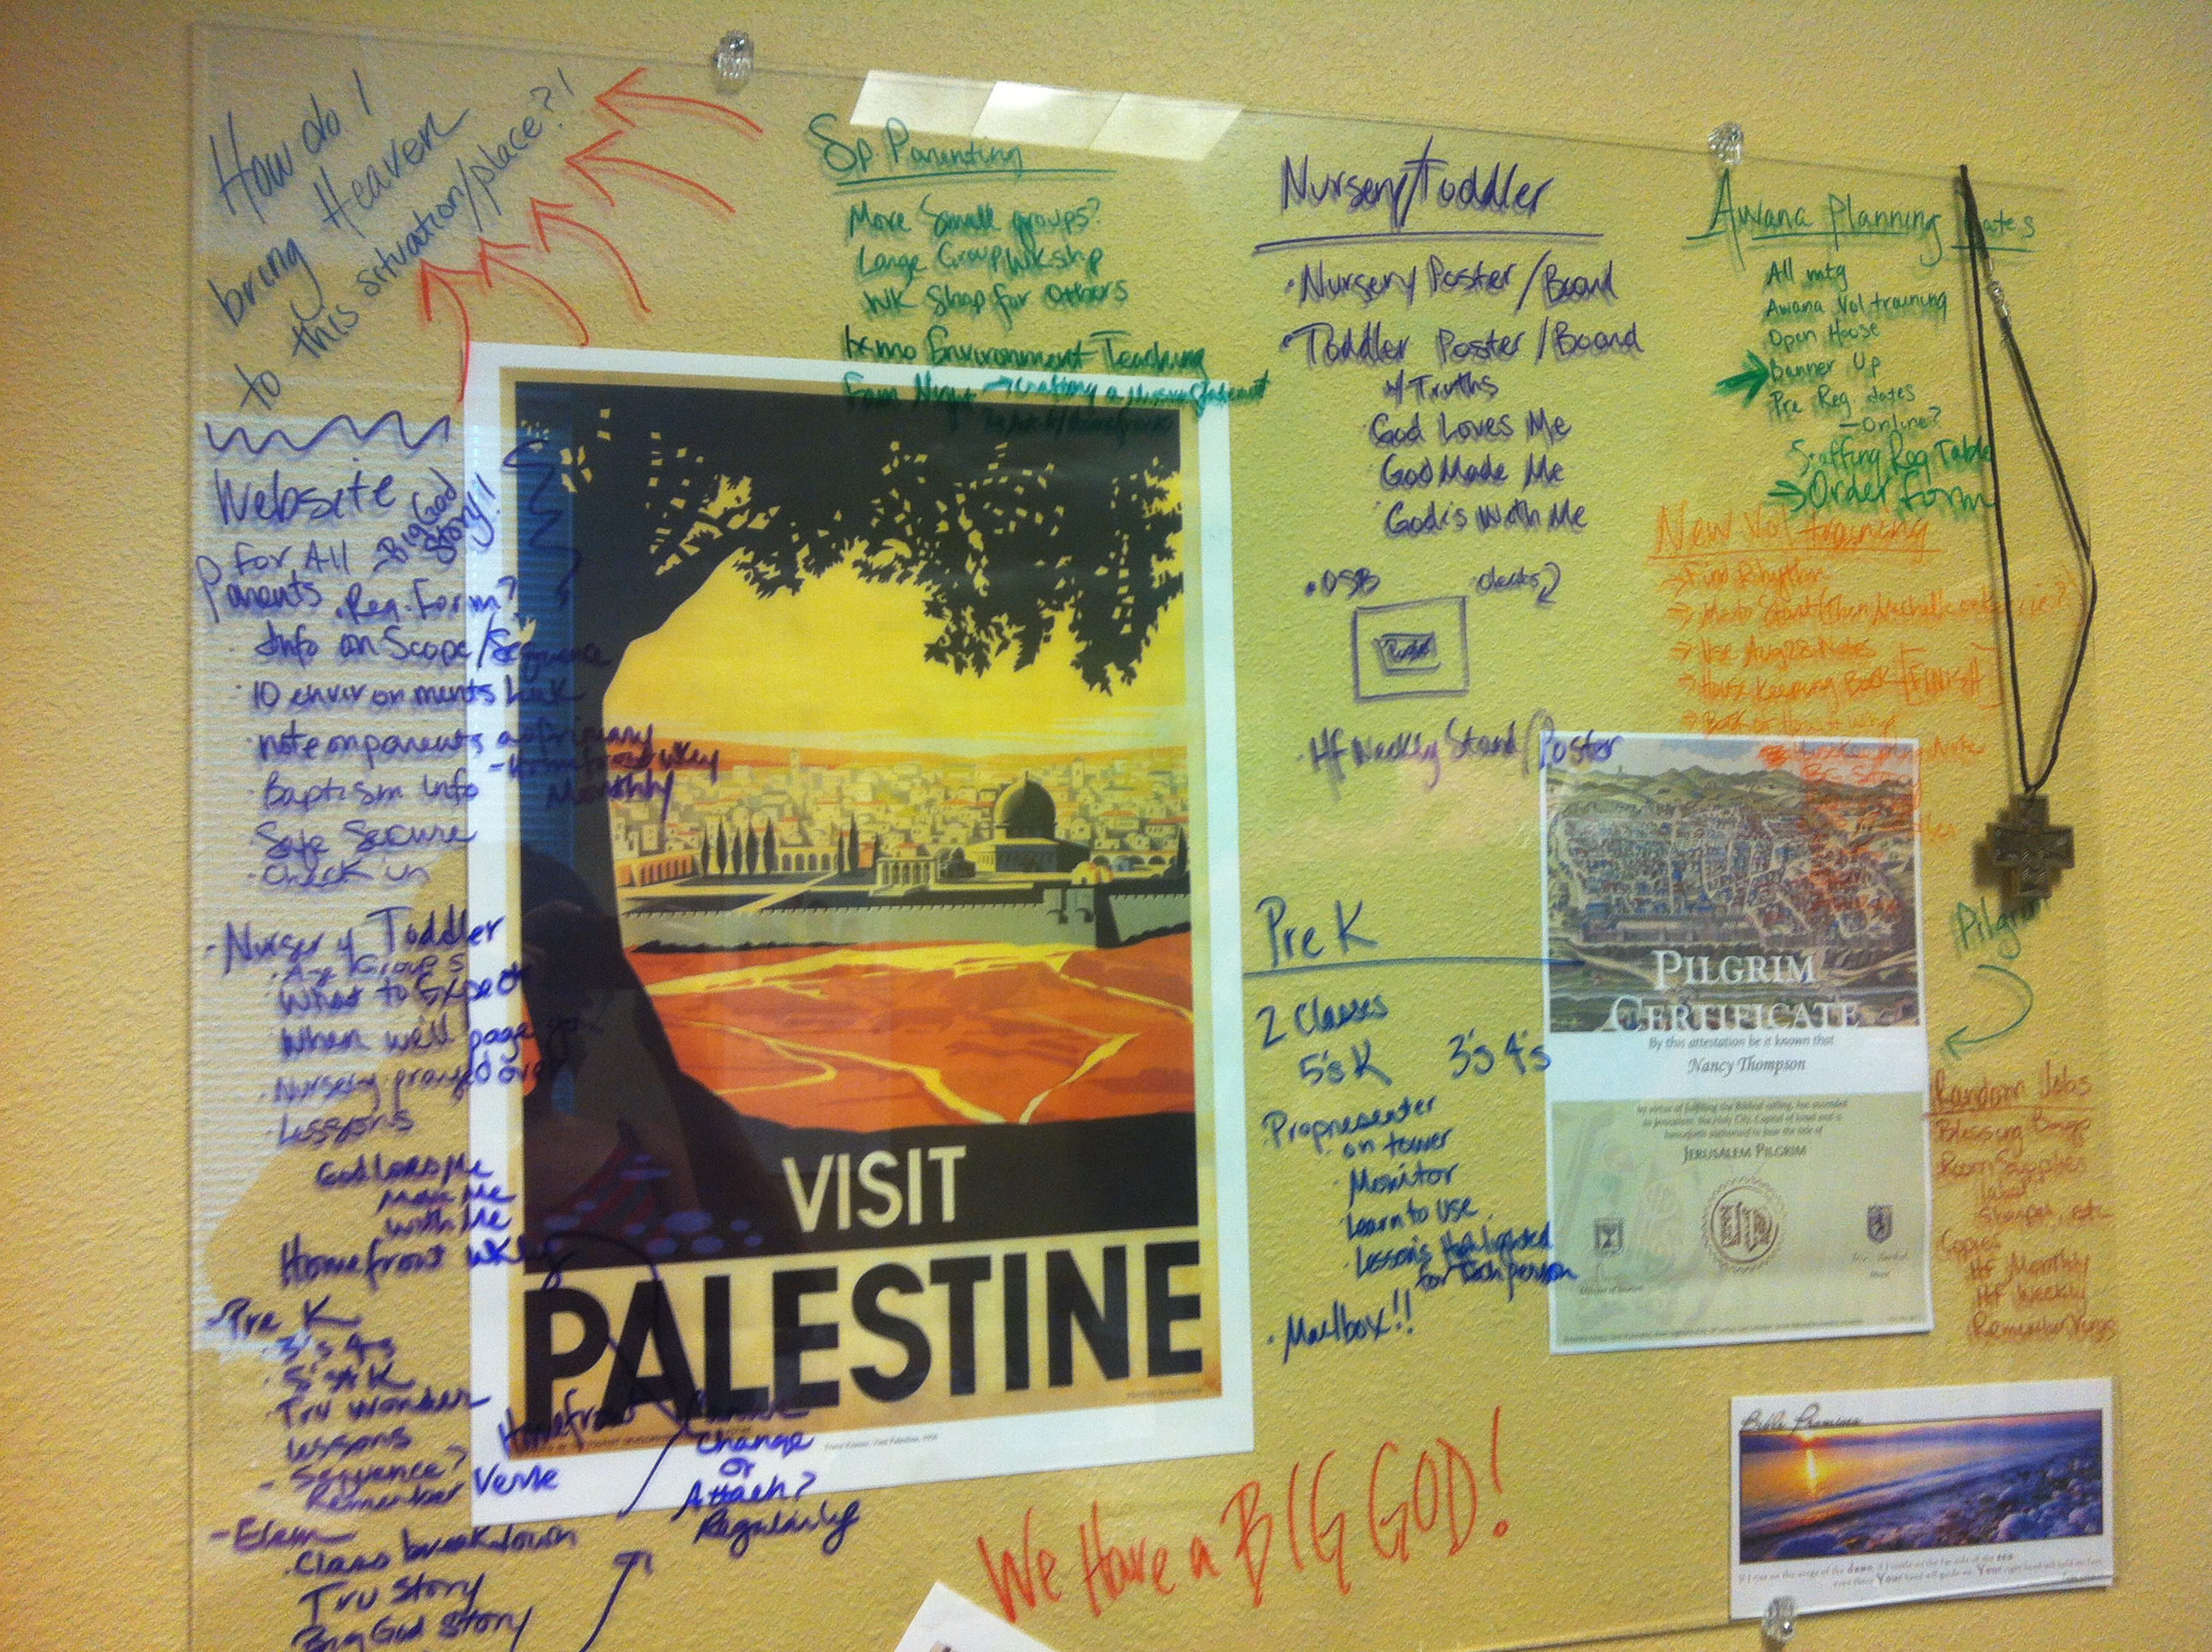 How do I
bring Heaven
to this situation/place?!
Website
- Big God
Story!!
for All
Parents
. Reg. Form?
. Info on Scope/Sequence
. 10 environments Link
. note on parents as primary
- Homefront Wkly
Monthly
. Baptism info
. Safe Secure
. Check in
- Nursery Toddler
. Age Groups
. What to Expect
. When we'll page
. Nursery prayed over
. Lessons
God Loves Me
Made Me
With Me
Homefront Wkly
- Pre K
. 3's 4s
. 5's K
. Tru Wonder
Lessons
- Sequence?
Remember Verse
Homefront
Change
or
Attach?
Regularly
- Elem
. Class breakdown
Tru Story
Big God Story
Sp. Parenting
More Small groups?
Large Group Wkshp
Wk Shop for Others
Environment Teaching
Fam Night → Crafting a Mission Statement
VISIT
PALESTINE
Nursery/Toddler
. Nursery Poster/Board
. Toddler Poster/Board
w/ Truths
God Loves Me
God Made Me
God is With Me
. OSB
Poster
. Hf Weekly Stand/Poster
Pre K
2 Classes
5's K 3's 4's
. Propresenter
on tower
. Monitor
. Learn to use
. Lessons Highlighted
for Each person
. Mailbox!!
We Have a BIG GOD!
Awana Planning Dates
All mtg
Awana Vol training
Open House
Banner Up
Pre Reg dates
- Online?
Staffing Reg Table
→ Order Form
New Vol training
→ Find Rhythm
→ Use Aug 28 Notes
→ House Keeping Book [FINISH]
PILGRIM
CERTIFICATE
By this attestation be it known that
Nancy Thompson
JERUSALEM PILGRIM
Pilgrim
Random Jobs
Blessing Bags
Room Supplies
Sharpen, etc
Copies
HF Monthly
HF Weekly
Remember Verses
Bible Promises